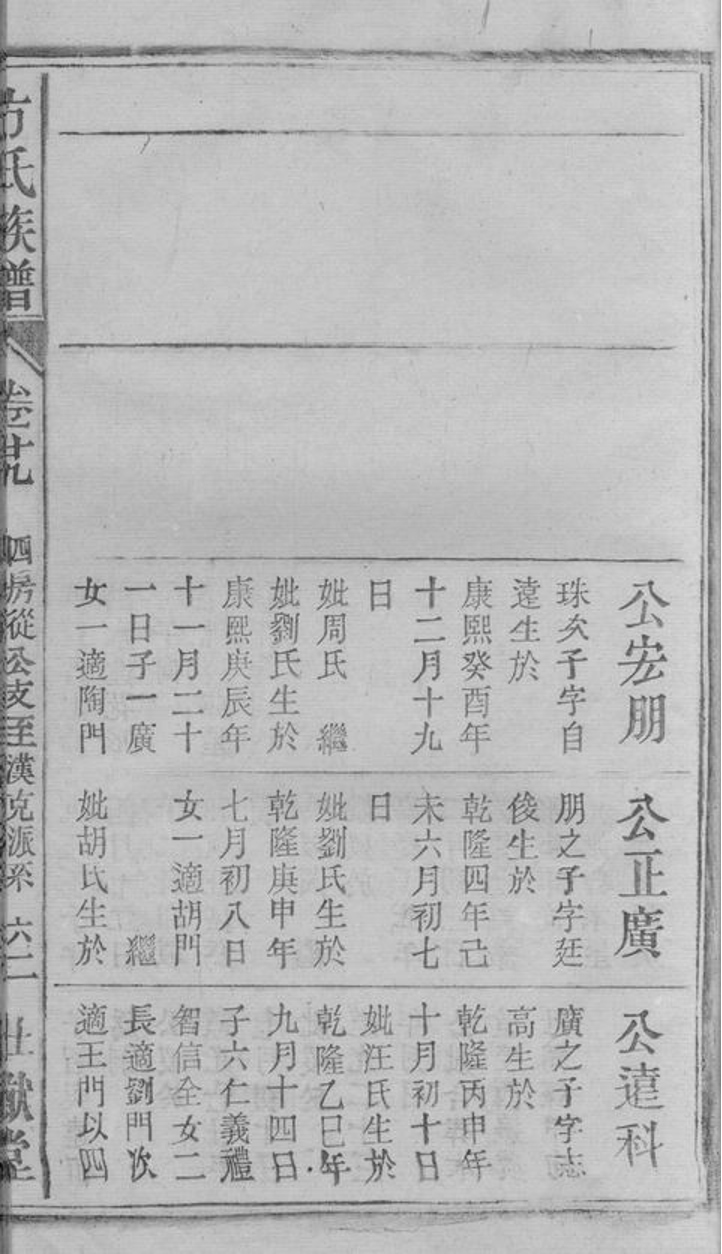 公宏朋
珠次子字自
遠生於
康熙癸酉年
十二月十九
日
妣周氏　繼
妣劉氏生於
康熙庚辰年
十一月二十
一日子一廣
女一適陶門
公正廣
朋之子字廷
俊生於
乾隆四年己
未六月初七
日
妣劉氏生於
乾隆庚申年
七月初八日
女一適胡門
繼
妣胡氏生於
公遠科
廣之子字志
高生於
乾隆丙申年
十月初十日
妣汪氏生於
乾隆乙巳年
九月十四日
子六仁義禮
智信全女二
長適劉門次
適王門以四
方氏族譜
卷廿九
四房從公支至漢克派系
六二